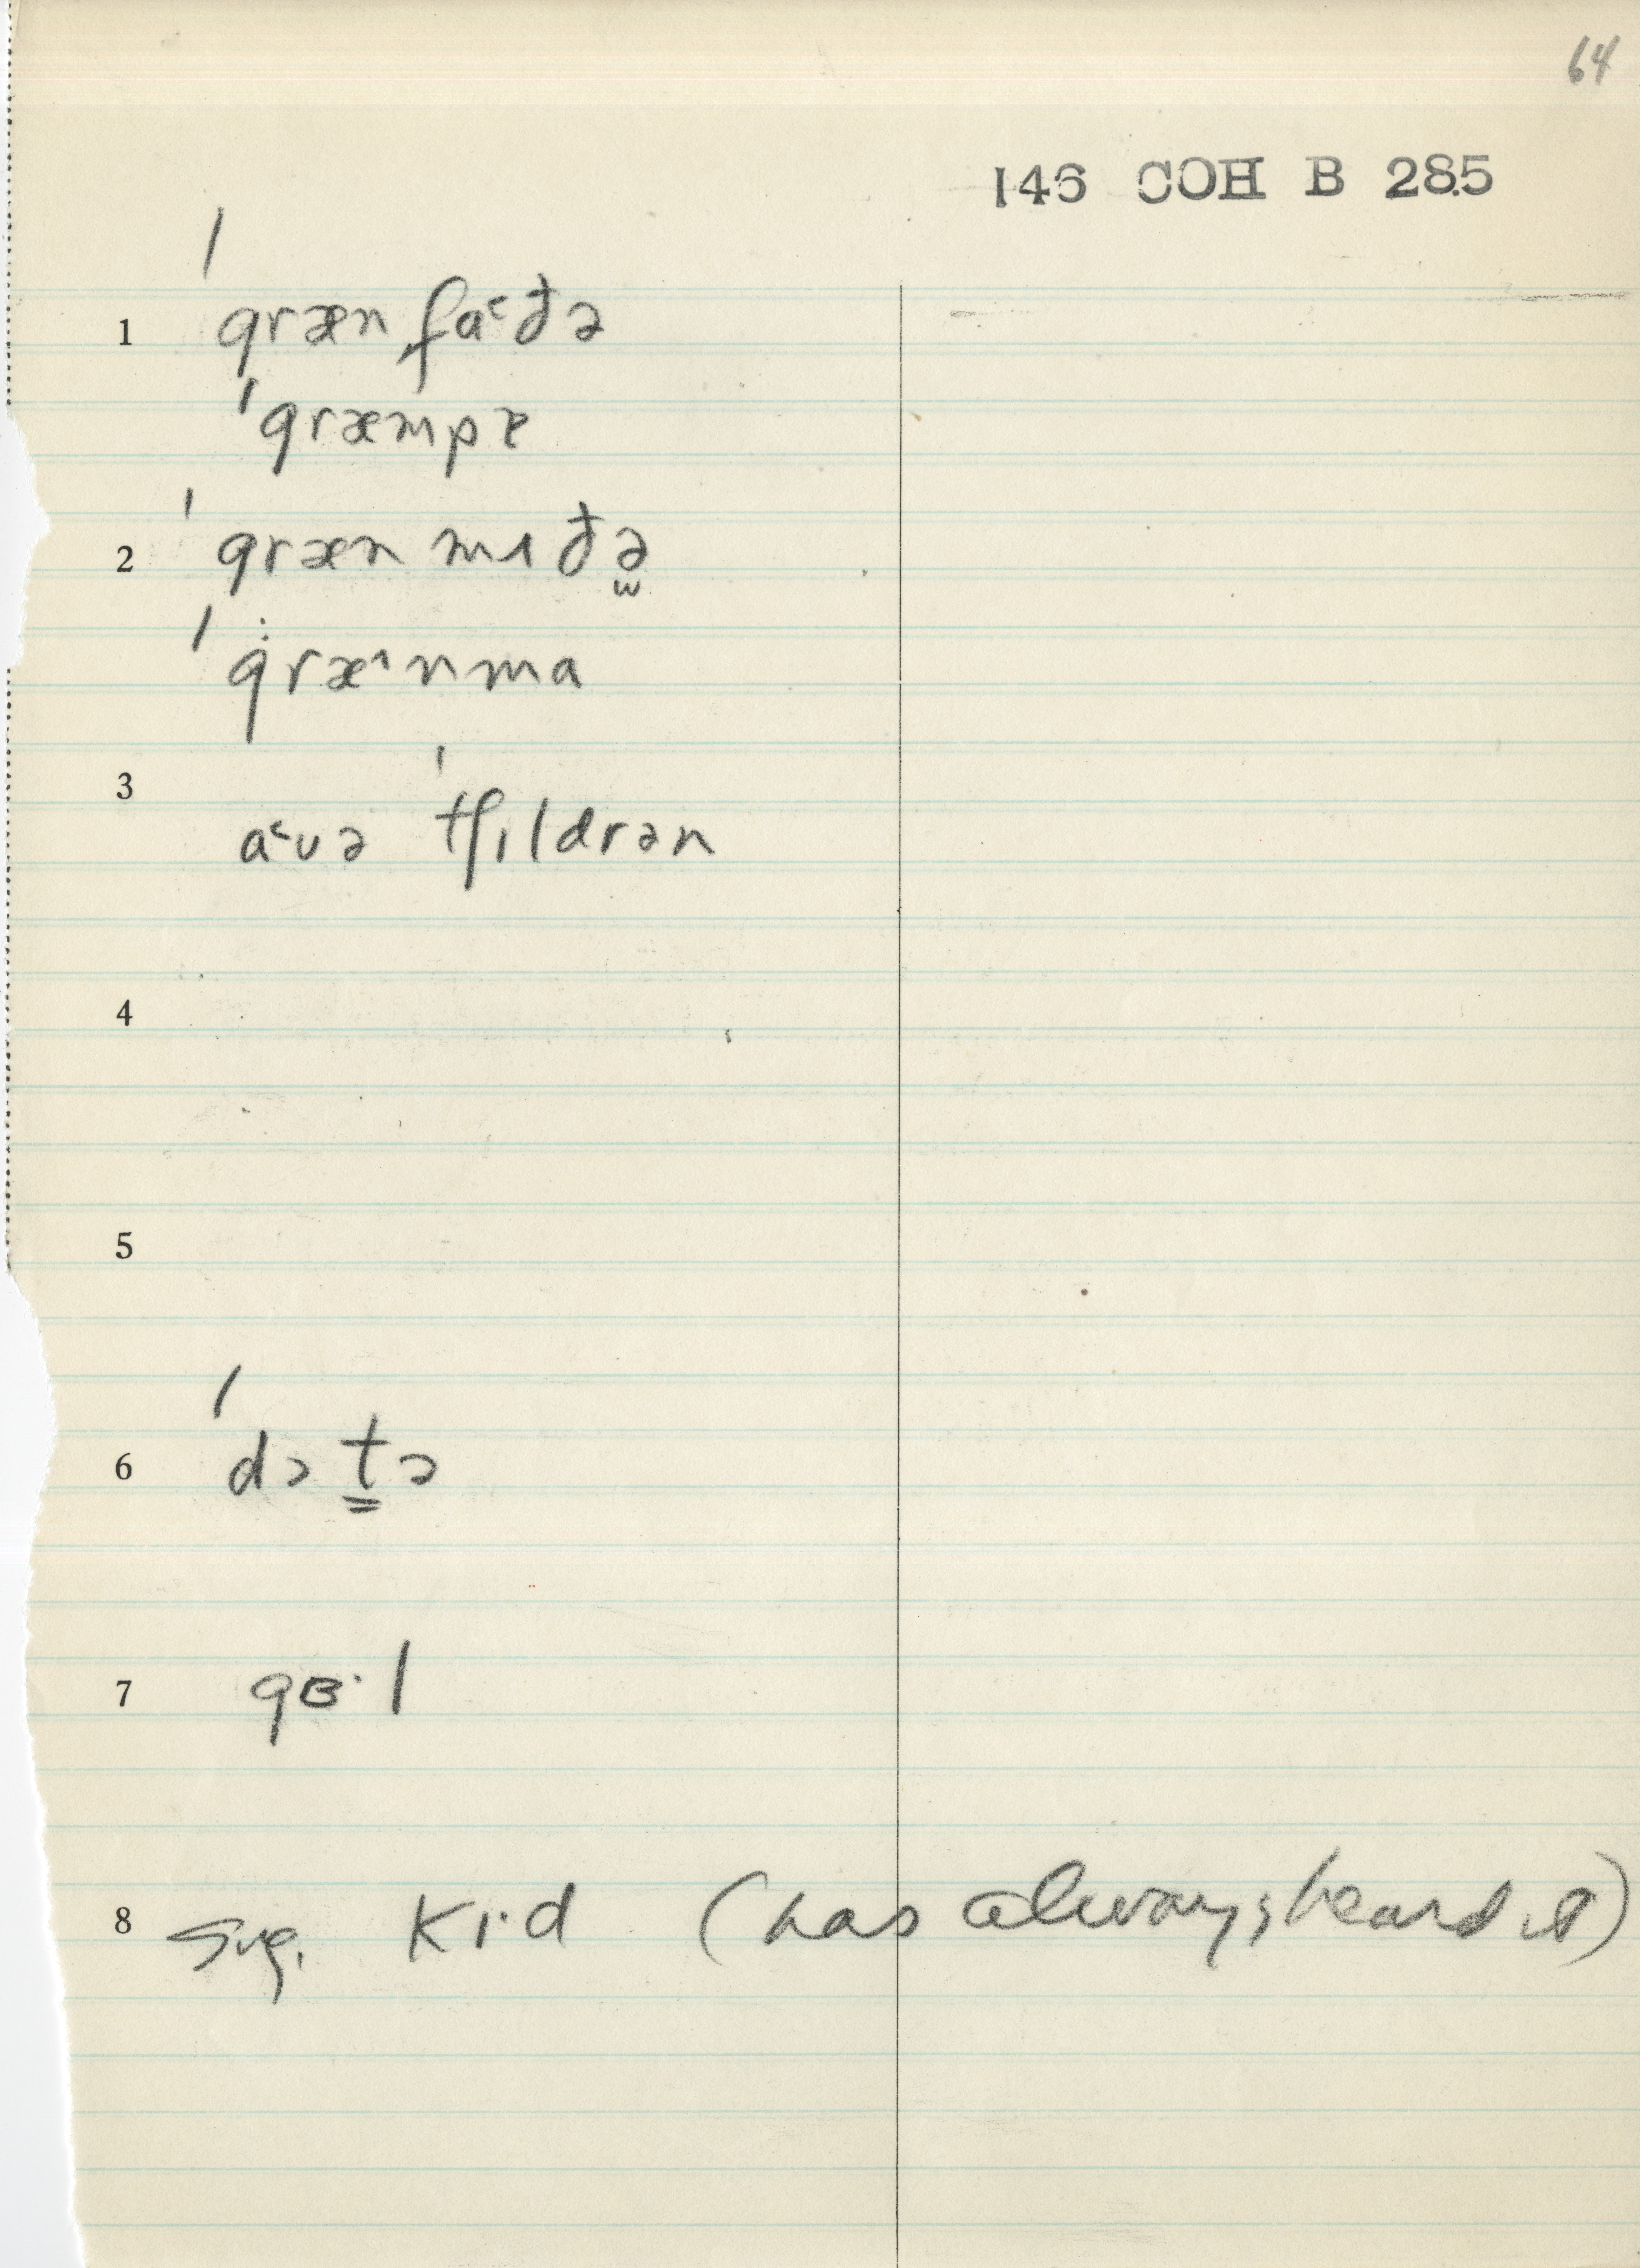 64
146 COH B 285
1 ˈgræn fa˂ðə
ˈgræmpɐ
2 ˈgræn mɐðə̫
ˈgræ˄nma
3 a˂və ˈtʃɪldrən
4
5
6 ˈdɔt̳ə
7 gɞ·l
8 sug. kɪ·d (has always heard it)